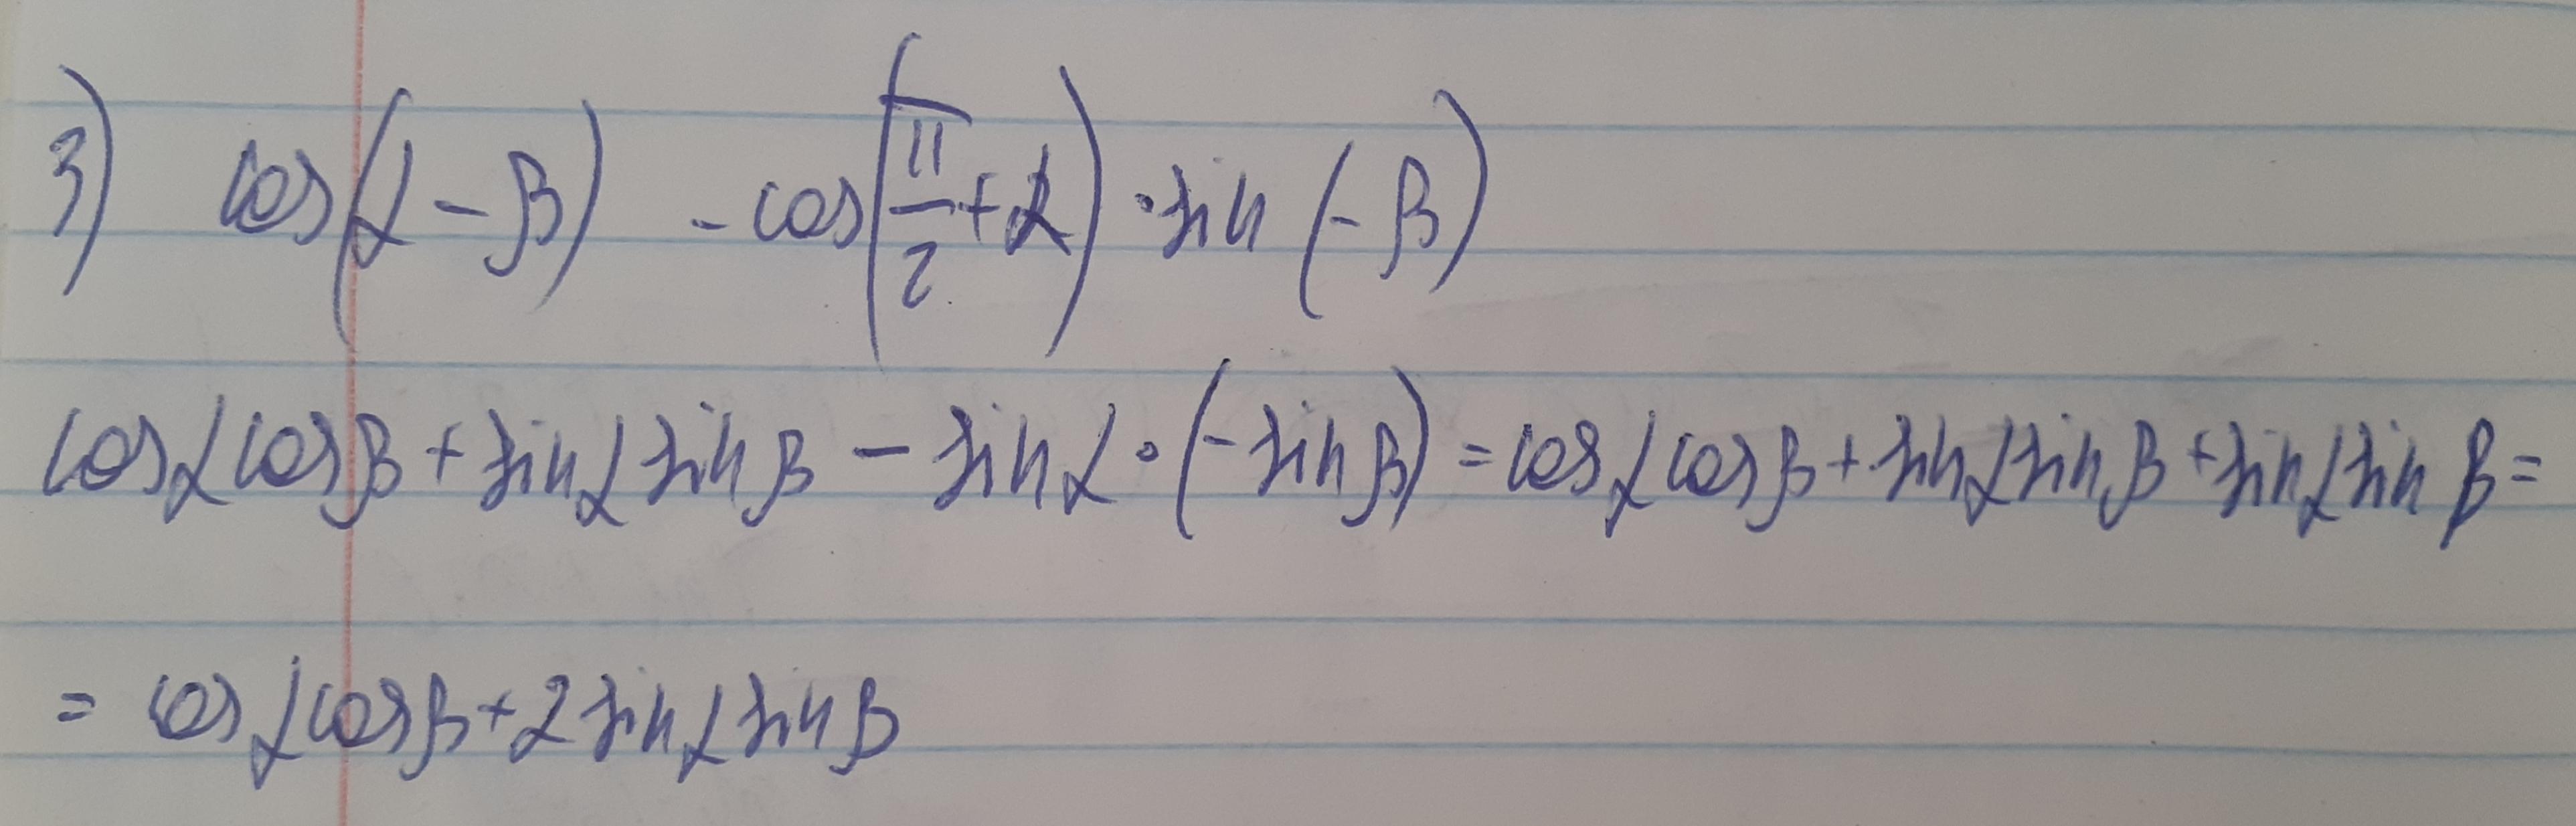 3) cos(α - β) - cos(π/2 + α) · sin(-β)
cosα cosβ + sinα sinβ - sinα · (-sinβ) = cosα cosβ + sinα sinβ + sinα sinβ =
= cosα cosβ + 2 sinα sinβ